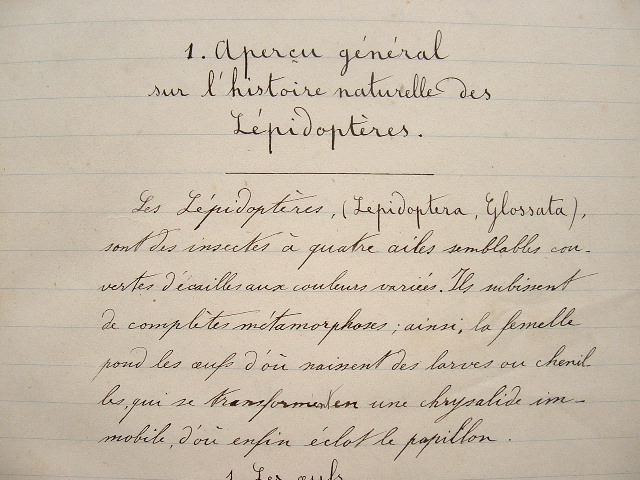 1. Aperçu général
sur l'histoire naturelle des
Lépidoptères.
Les Lépidoptères, (Lepidoptera, Glossata),
sont des insectes à quatre ailes semblables cou-
vertes d'écailles aux couleurs variées. Ils subissent
de complètes métamorphoses; ainsi, la femelle
pond les œufs d'où naissent des larves ou chenil-
les, qui se transforment en une chrysalide im-
mobile, d'où enfin éclot le papillon.
1. Les œufs